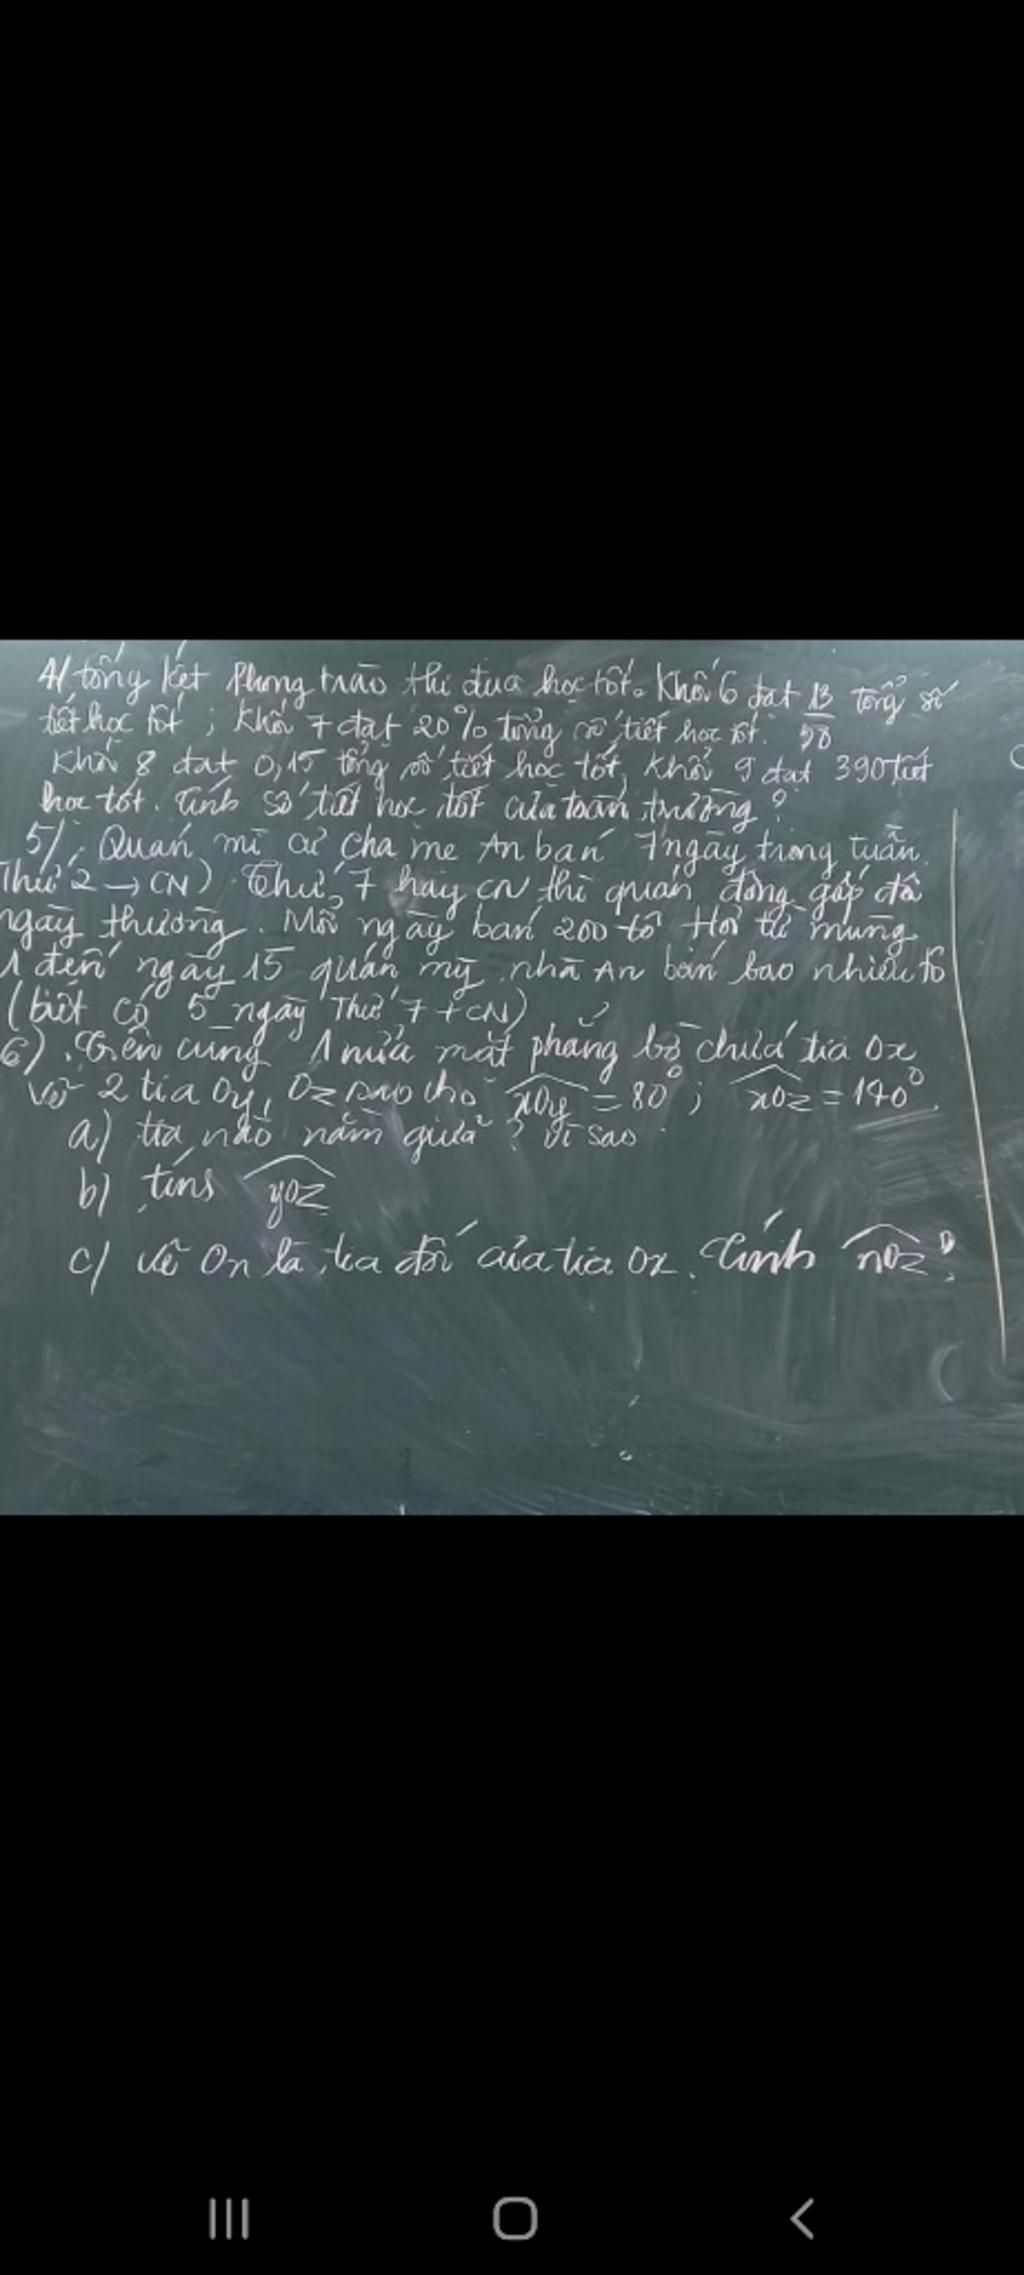 4/ tổng kết phong trào thi đua học tốt. Khối 6 đạt 13/50 tổng số
tiết học tốt ; Khối 7 đạt 20% tổng số tiết học tốt.
Khối 8 đạt 0,15 tổng số tiết học tốt, Khối 9 đạt 390 tiết
học tốt. Tính số tiết học tốt của toàn trường ?
5/. Quán mì cử cha mẹ An bán 7 ngày trong tuần.
Thứ 2 → CN) Thứ 7 hay CN thì quán đông gấp đôi
ngày thường. Mỗi ngày bán 200 tô Hỏi từ mùng
1 đến ngày 15 quán mỳ nhà An bán bao nhiêu tô
(biết có 5 ngày Thứ 7 + CN)
6). Trên cùng 1 nửa mặt phẳng bờ chứa tia Ox
Vẽ 2 tia Oy, Oz sao cho xOy = 80° ; xOz = 140°.
a) tia nào nằm giữa ? Vì sao
b) tính yOz
c) vẽ On là tia đối của tia Ox. Tính nOz ?